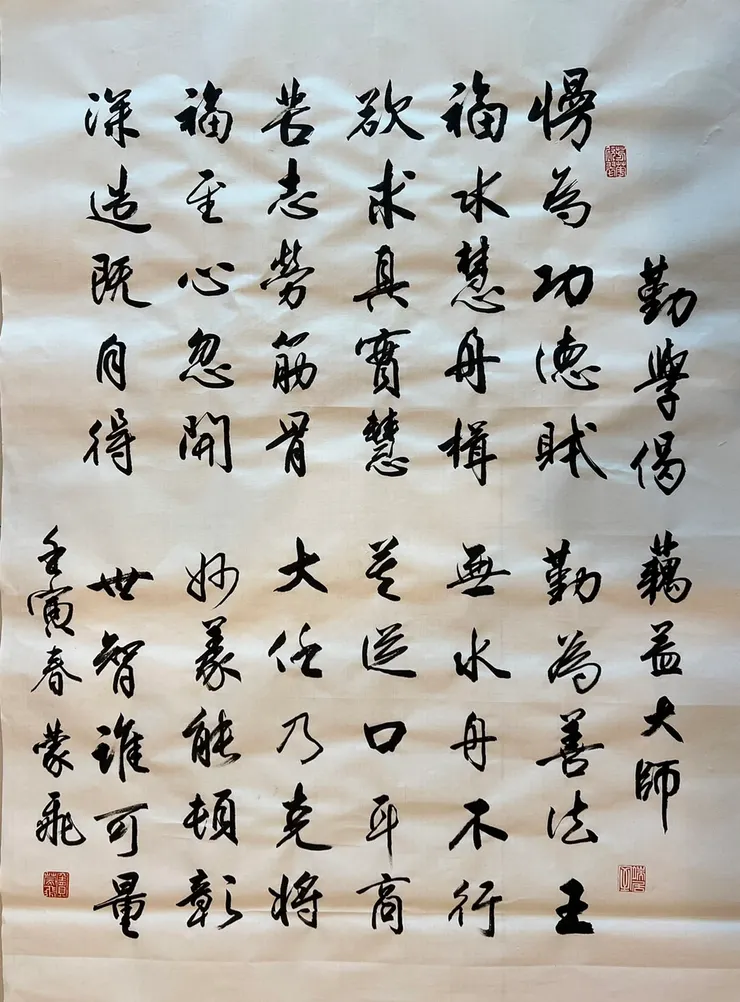 勤學偈 藕益大師
慢為功德賊 勤為善法王
福水慧舟楫 無水舟不行
欲求真實慧 莫從口耳商
苦志勞筋骨 大任乃克將
福至心忽開 妙義能頓彰
深造既自得 世智誰可量
壬寅春 蒙飛